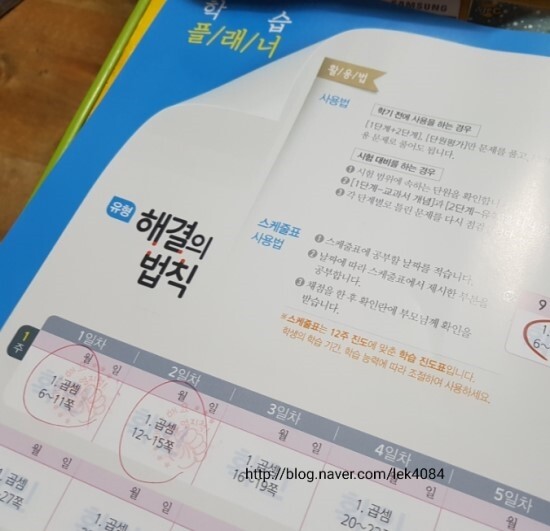 SAMSUNG
학 습
플/래/너
활/용/법
사용법
학기 전에 사용을 하는 경우
[1단계+2단계], [단원평가]만 문제를 풀고,
용 문제로 풀어도 됩니다.
시험 대비를 하는 경우
❶ 시험 범위에 속하는 단원을 확인합니
❷ [1단계-교과서 개념]과 [2단계-유
❸ 각 단계별로 틀린 문제를 다시 점검
유형
해결의
법칙
스케줄표
사용법
❶ 스케줄표에 공부할 날짜를 적습니다.
❷ 날짜에 따라 스케줄표에서 제시한 부분을
공부합니다.
❸ 채점을 한 후 확인란에 부모님께 확인을
받습니다.
※스케줄표는 12주 진도에 맞춘 학습 진도표입니다.
학생의 학습 기간, 학습 능력에 따라 조절하여 사용하세요.
9
1.
6~
1주
1일차
2일차
3일차
4일차
5일차
월 일
월 일
월 일
월 일
월
1. 곱셈
6~11쪽
1. 곱셈
12~15쪽
1. 곱셈
16~19쪽
1. 곱셈
20~
월 일
월 일
1. 곱셈
~27쪽
1. 곱셈
http://blog.naver.com/lek4084